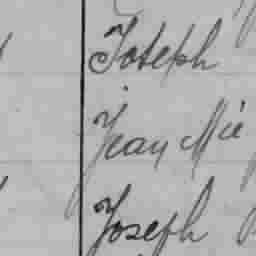 Joseph
Jean Mie
Joseph